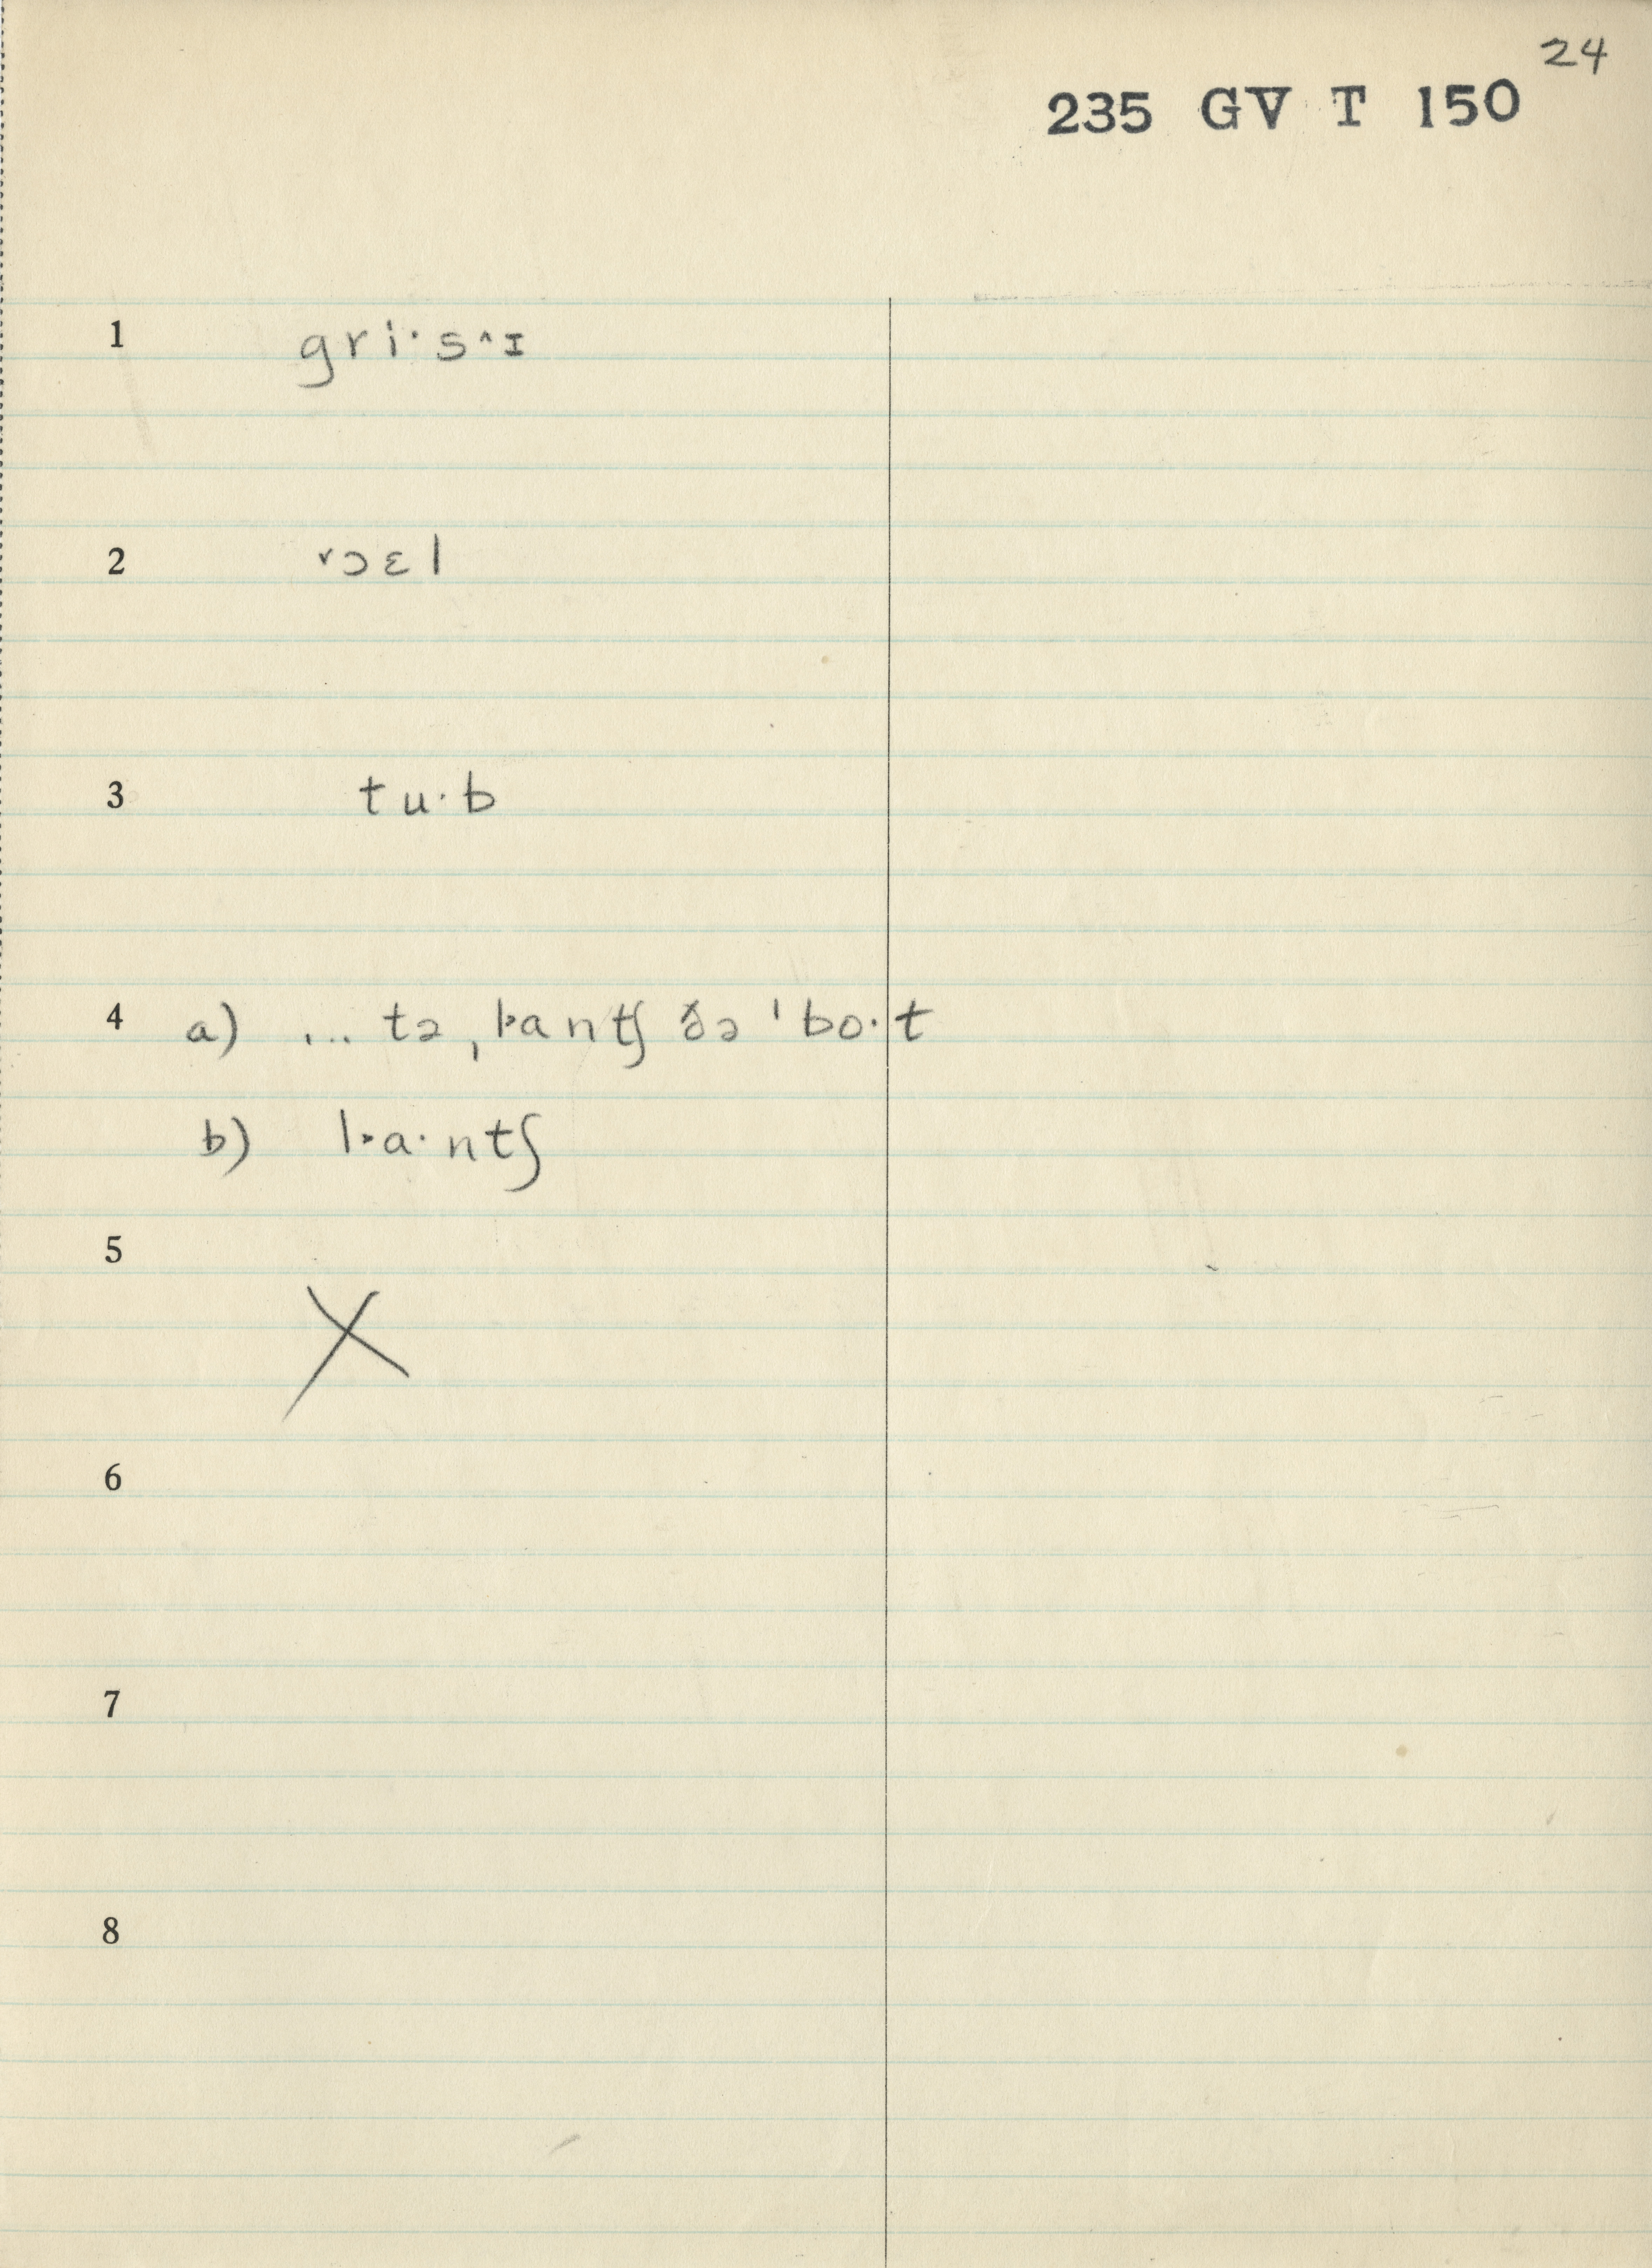 24
235 GV T 150
1 gri·s^ɪ
2 ˅ɔɛl
3 tu·b
4 a) ... tə ˌl˃antʃ ðə ˈbo·t
b) l˃a·ntʃ
5
X
6
7
8